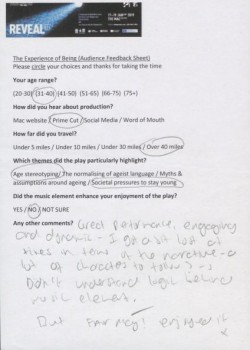 REVEAL
The Experience of Being (Audience Feedback Sheet)
Please circle your choices and thanks for taking the time
Your age range?
(20-30) (31-40) (41-50) (51-65) (66-75) (75+)
How did you hear about production?
Mac website / Prime Cut / Social Media / Word of Mouth
How far did you travel?
Under 5 miles / Under 10 miles / Under 30 miles / Over 40 miles
Which themes did the play particularly highlight?
Age stereotyping / The normalising of ageist language / Myths &
assumptions around ageing / Societal pressures to stay young
Did the music element enhance your enjoyment of the play?
YES / NO / NOT SURE
Any other comments? Great performance, engaging
and dynamic - I got a bit lost at
times in terms of the narrative - a
lot of characters to follow? -
Didn't understand logic behind
music element.
But enjoyed it